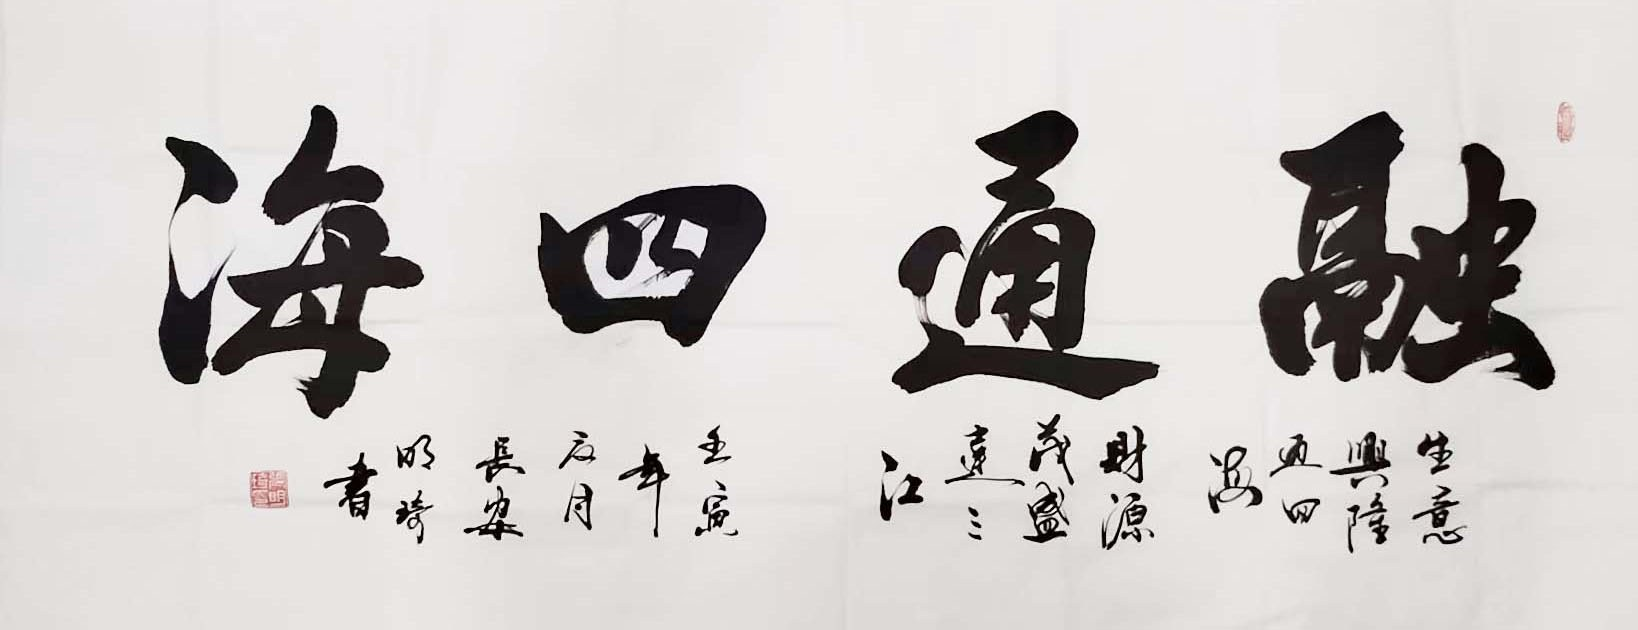 融通四海
生意
興隆
通四
海
財源
茂盛
達三
江
壬寅
年
長
明琦
書